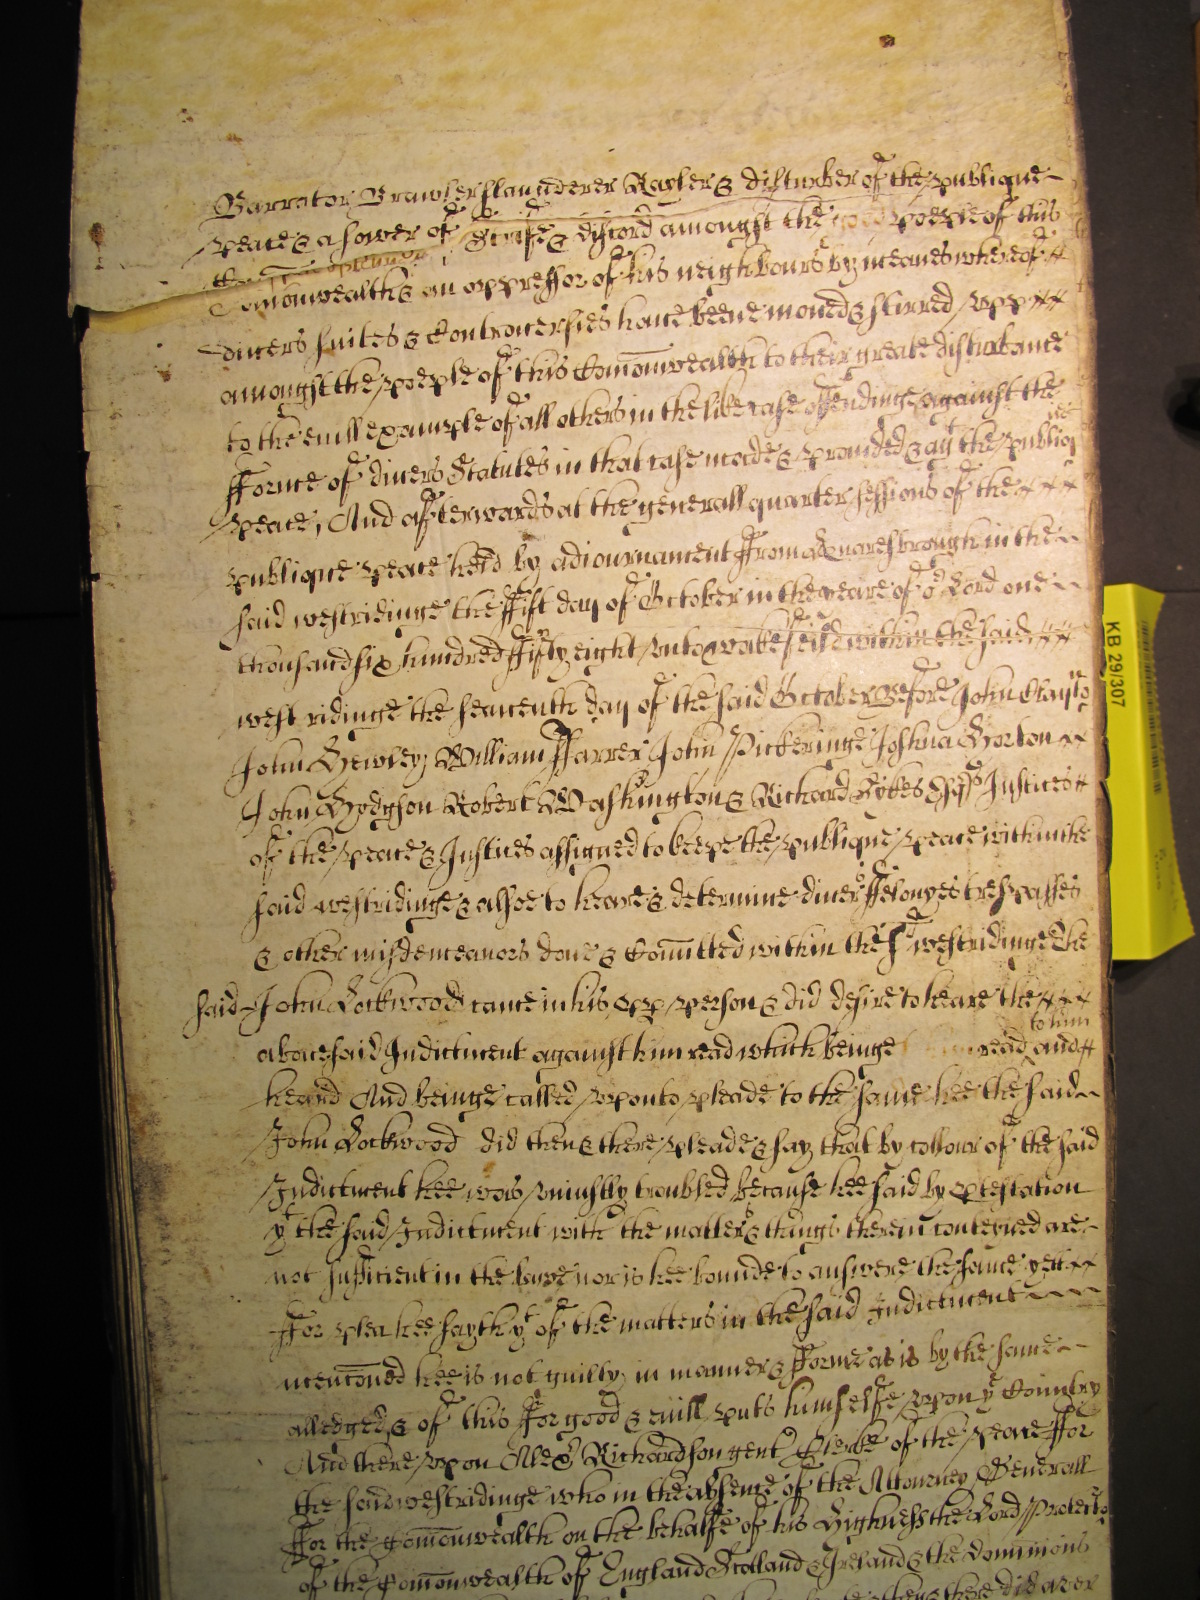 Barrator Brawler slaunderer Rayler & disturber of the publique
peace & a sower of Strife & discord amongst the good poeple of this
Comonwealth & an oppressor of his neighbours by meanes whereof
divers suites & Controversies have beene moved & stirred upp
amongst the poeple of this Comonwealth to their greate disturbance
to the evill example of all others in the like case offendinge against the
fforme of divers Statutes in that case made & provided & agt the publiq
peace, And afterwards at the generall quarter sessions of the
publique peace held by adiournament ffrom Knaresbrough in the
said westridinge the ffift day of October in the yeare of or Lord one
thousand six hundred ffifty eight unto wakefeild within the said
west ridinge the seaventh day of the said October Before John Clayto
John Hewley, William ffarrer John Pickeringe Joshua Horton
John Hodgson Robert Washington & Richard Sykes Esqrs Justices
of the peace & Justices assigned to keepe the publique peace within the
said westridinge & alsoe to heare & determine divers ffelonyes trespasses
& other misdemeanors done & Comitted within the sd westridinge The
said John Lockwood came in his opp person & did desire to heare the
abovesaid Indictment against him read which beinge read to him and
heard And beinge called upon to pleade to the same hee the said
John Lockwood did then & there pleade & say that by collour of the said
Indictment hee was uniustly troubled because hee said by ptestation
yt the said Indictment with the matters & things therein conteyned are
not sufficient in the lawe nor is hee bounde to answere the same yett
ffor plea hee sayth yt of the matters in the said Indictment
mentoned hee is not guilty in manner & fforme as is by the same
alledged, & of this ffor good & evill puts himselfe upon ye Country
And there upon Alexr Richardson gent Clerke of the peace ffor
the said westridinge who in the absence of the Attourney Generall
ffor the Comonwealth on the behalfe of his Highness the Lord Protecto
of the Comonwealth of England Scotland & Ireland & the dominions
then & there did aver
KB 29/307